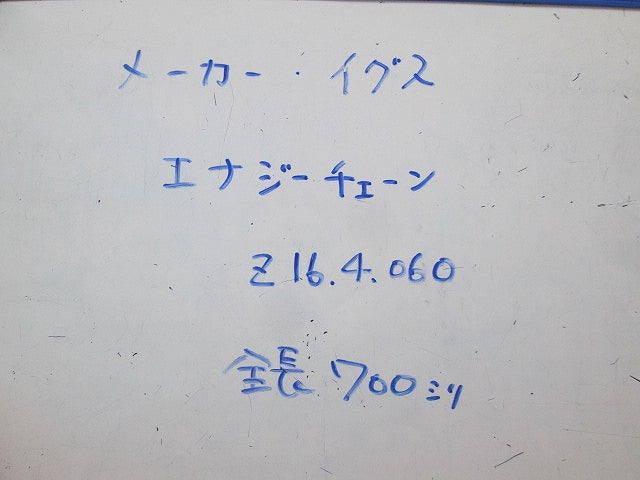 メーカー・イグス
エナジーチェーン
Z16.4.060
全長 700ミリ